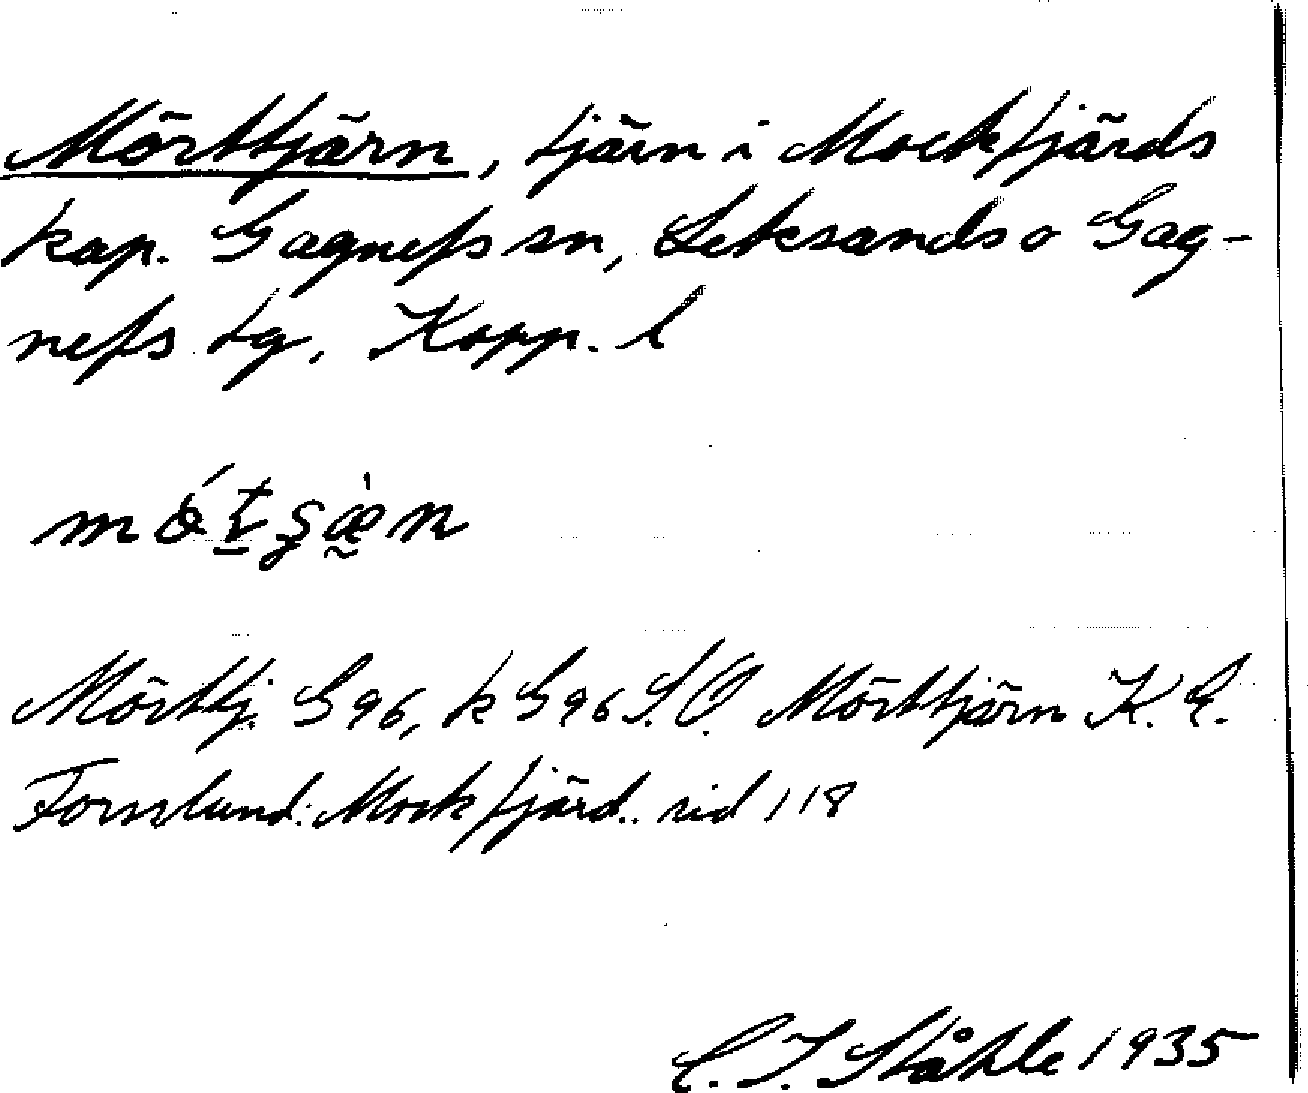 Mörttjärn, tjärn i Mockfjärds
kap. Gagnefs sn, Leksands o Gag-
nefs tg, Kopp. l
Mörttj. G 96, k G 96 S.O. Mörttjärn K. E.
Forslund: Mockfjärd.. sid 118
C. I. Ståhle 1935